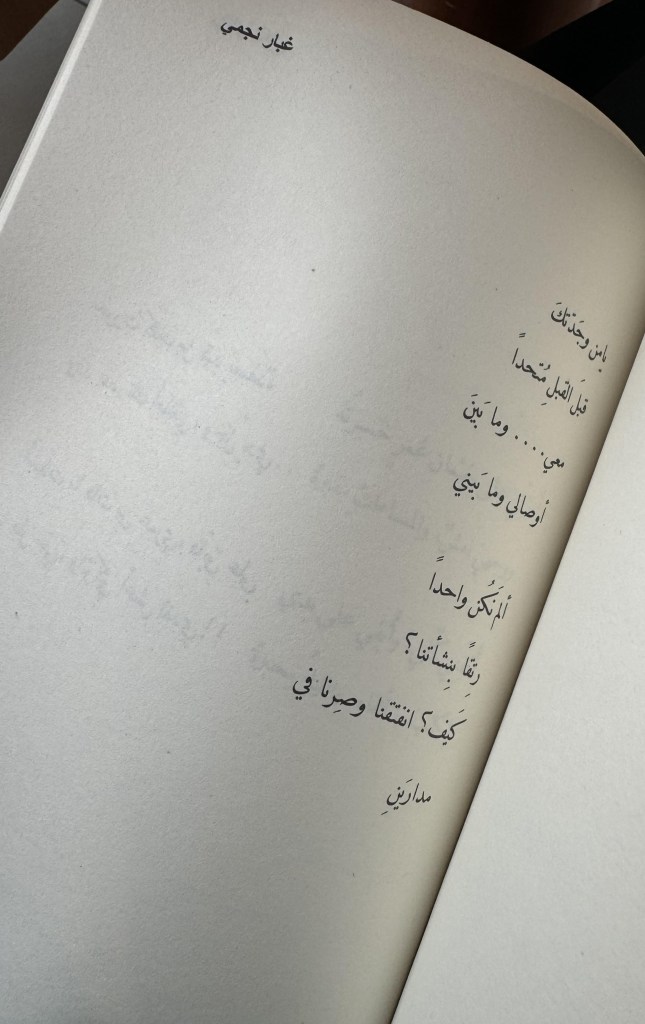 غبار نجمي
يامن وجَدتكَ
قبَل القبلِ مُتحداً
معي.... وما بَينَ
أوصالي وما بَيني
ألم نَكُن واحداً
رتِقًا بِنِشأتنا؟
كَيف؟ انفتقنا وصِرنا في
مدارَينِ